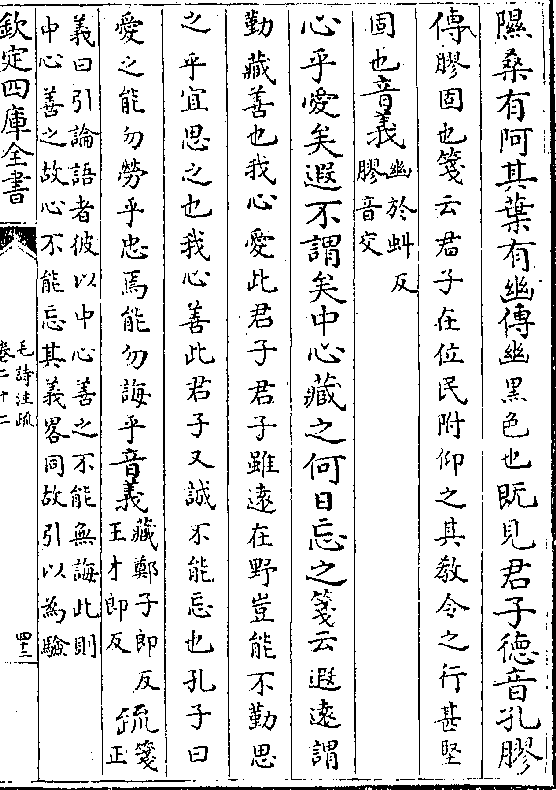 隰桑有阿其葉有幽傳幽黑色也既見君子德音孔膠
傳膠固也箋云君子在位民附仰之其教令之行甚堅
固也音義幽於虯反膠音交
心乎愛矣遐不謂矣中心藏之何日忘之箋云遐遠謂
勤藏善也我心愛此君子君子雖遠在野豈能不勤思
之乎宜思之也我心善此君子又誠不能忘也孔子曰
愛之能勿勞乎忠焉能勿誨乎音義藏鄭子郎反王才郎反疏箋正
義曰引論語者彼以中心善之不能無誨此則
中心善之故心不能忘其義畧同故引以為驗
欽定四庫全書
毛詩注疏
卷二十二
四三